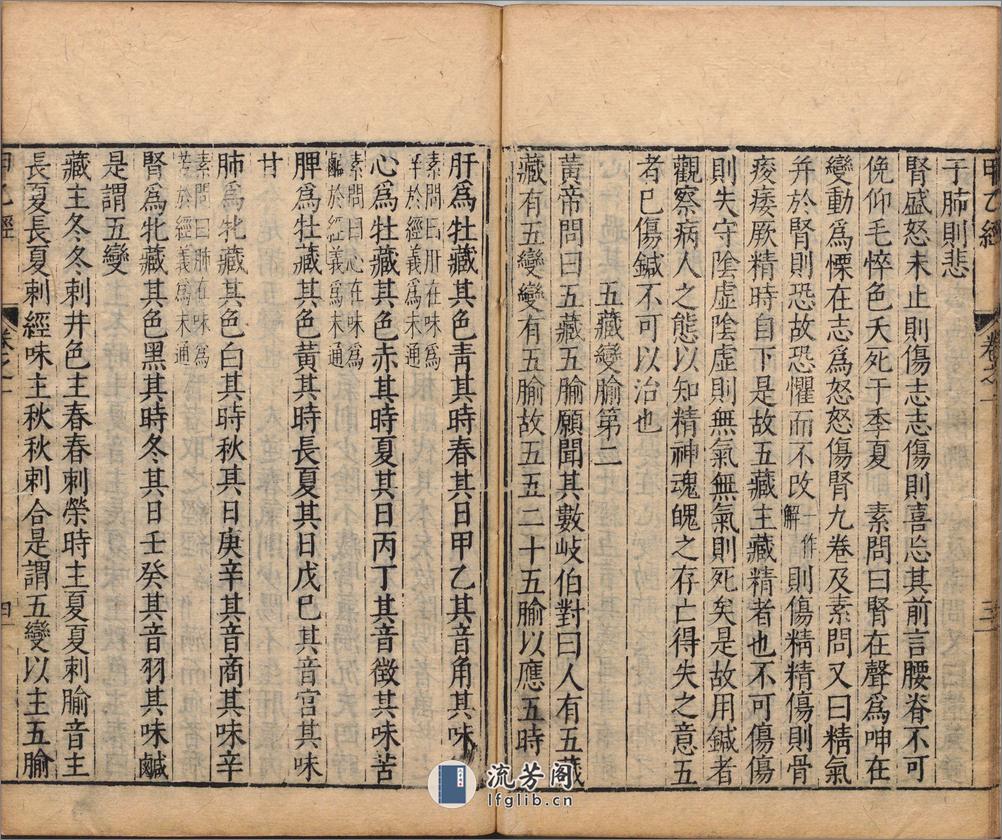 甲乙經 卷之一 三
于肺則悲
腎盛怒未止則傷志志傷則喜忘其前言腰脊不可
俛仰毛悴色夭死于季夏 素問曰腎在聲爲呻在
變動爲慄在志爲怒怒傷腎九卷及素問又曰精氣
并於腎則恐故恐懼而不改一作解則傷精精傷則骨
痠痿厥精時自下是故五藏主藏精者也不可傷傷
則失守陰虛陰虛則無氣無氣則死矣是故用鍼者
觀察病人之態以知精神魂魄之存亡得失之意五
者已傷鍼不可以治也
五藏變腧第二
黃帝問曰五藏五腧願聞其數岐伯對曰人有五藏
藏有五變變有五腧故五五二十五腧以應五時
肝爲牡藏其色青其時春其日甲乙其音角其味
素問曰肝在味爲
辛於經義爲未通
心爲牡藏其色赤其時夏其日丙丁其音徵其味苦
素問曰心在味爲
鹹於經義爲未通
脾爲牡藏其色黃其時長夏其日戊巳其音宮其味
甘
肺爲牝藏其色白其時秋其日庚辛其音商其味辛
素問曰肺在味爲
苦於經義爲未通
腎爲牝藏其色黑其時冬其日壬癸其音羽其味鹹
是謂五變
藏主冬冬刺井色主春春刺榮時主夏夏刺腧音主
長夏長夏刺經味主秋秋刺合是謂五變以主五腧
甲乙經 卷之一 四
流芳阁
lfglib.cn